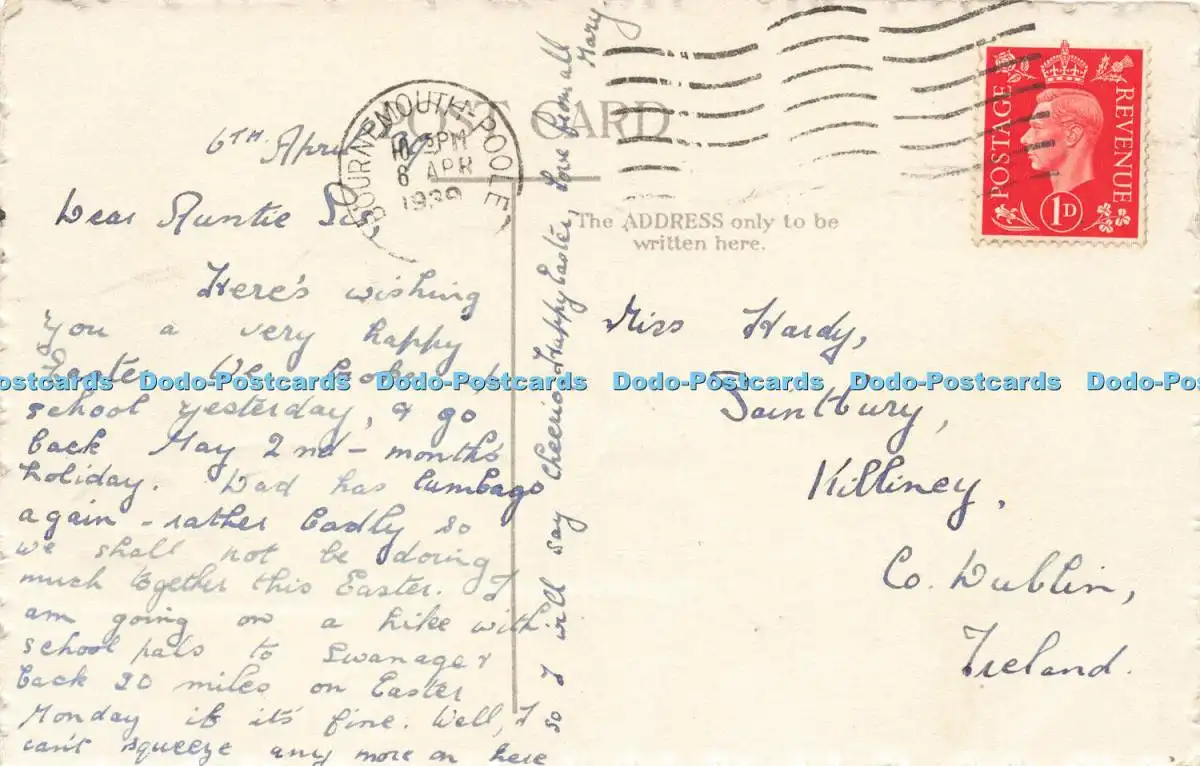 POST CARD
BOURNEMOUTH-POOLE
5PM
6 APR
1939
POSTAGE
REVENUE
1D
The ADDRESS only to be
written here.
6TH April
Dear Auntie
Here's wishing
you a very happy
Easter. We
school yesterday, & go
back May 2nd - months
holiday. Dad has lumbago
again - rather badly so
we shall not be doing
much together this Easter. I
am going on a hike with
school pals to Swanage &
back 20 miles on Easter
Monday if it's fine. Well, I
can't squeeze any more on here
so I will say Cheerio & Happy Easter, love from all
Mary.
Miss Hardy,
Saintbury,
Killiney,
Co. Dublin,
Ireland.
Dodo-Postcards Dodo-Postcards Dodo-Postcards Dodo-Postcards Dodo-Postcards Dodo-Postcards